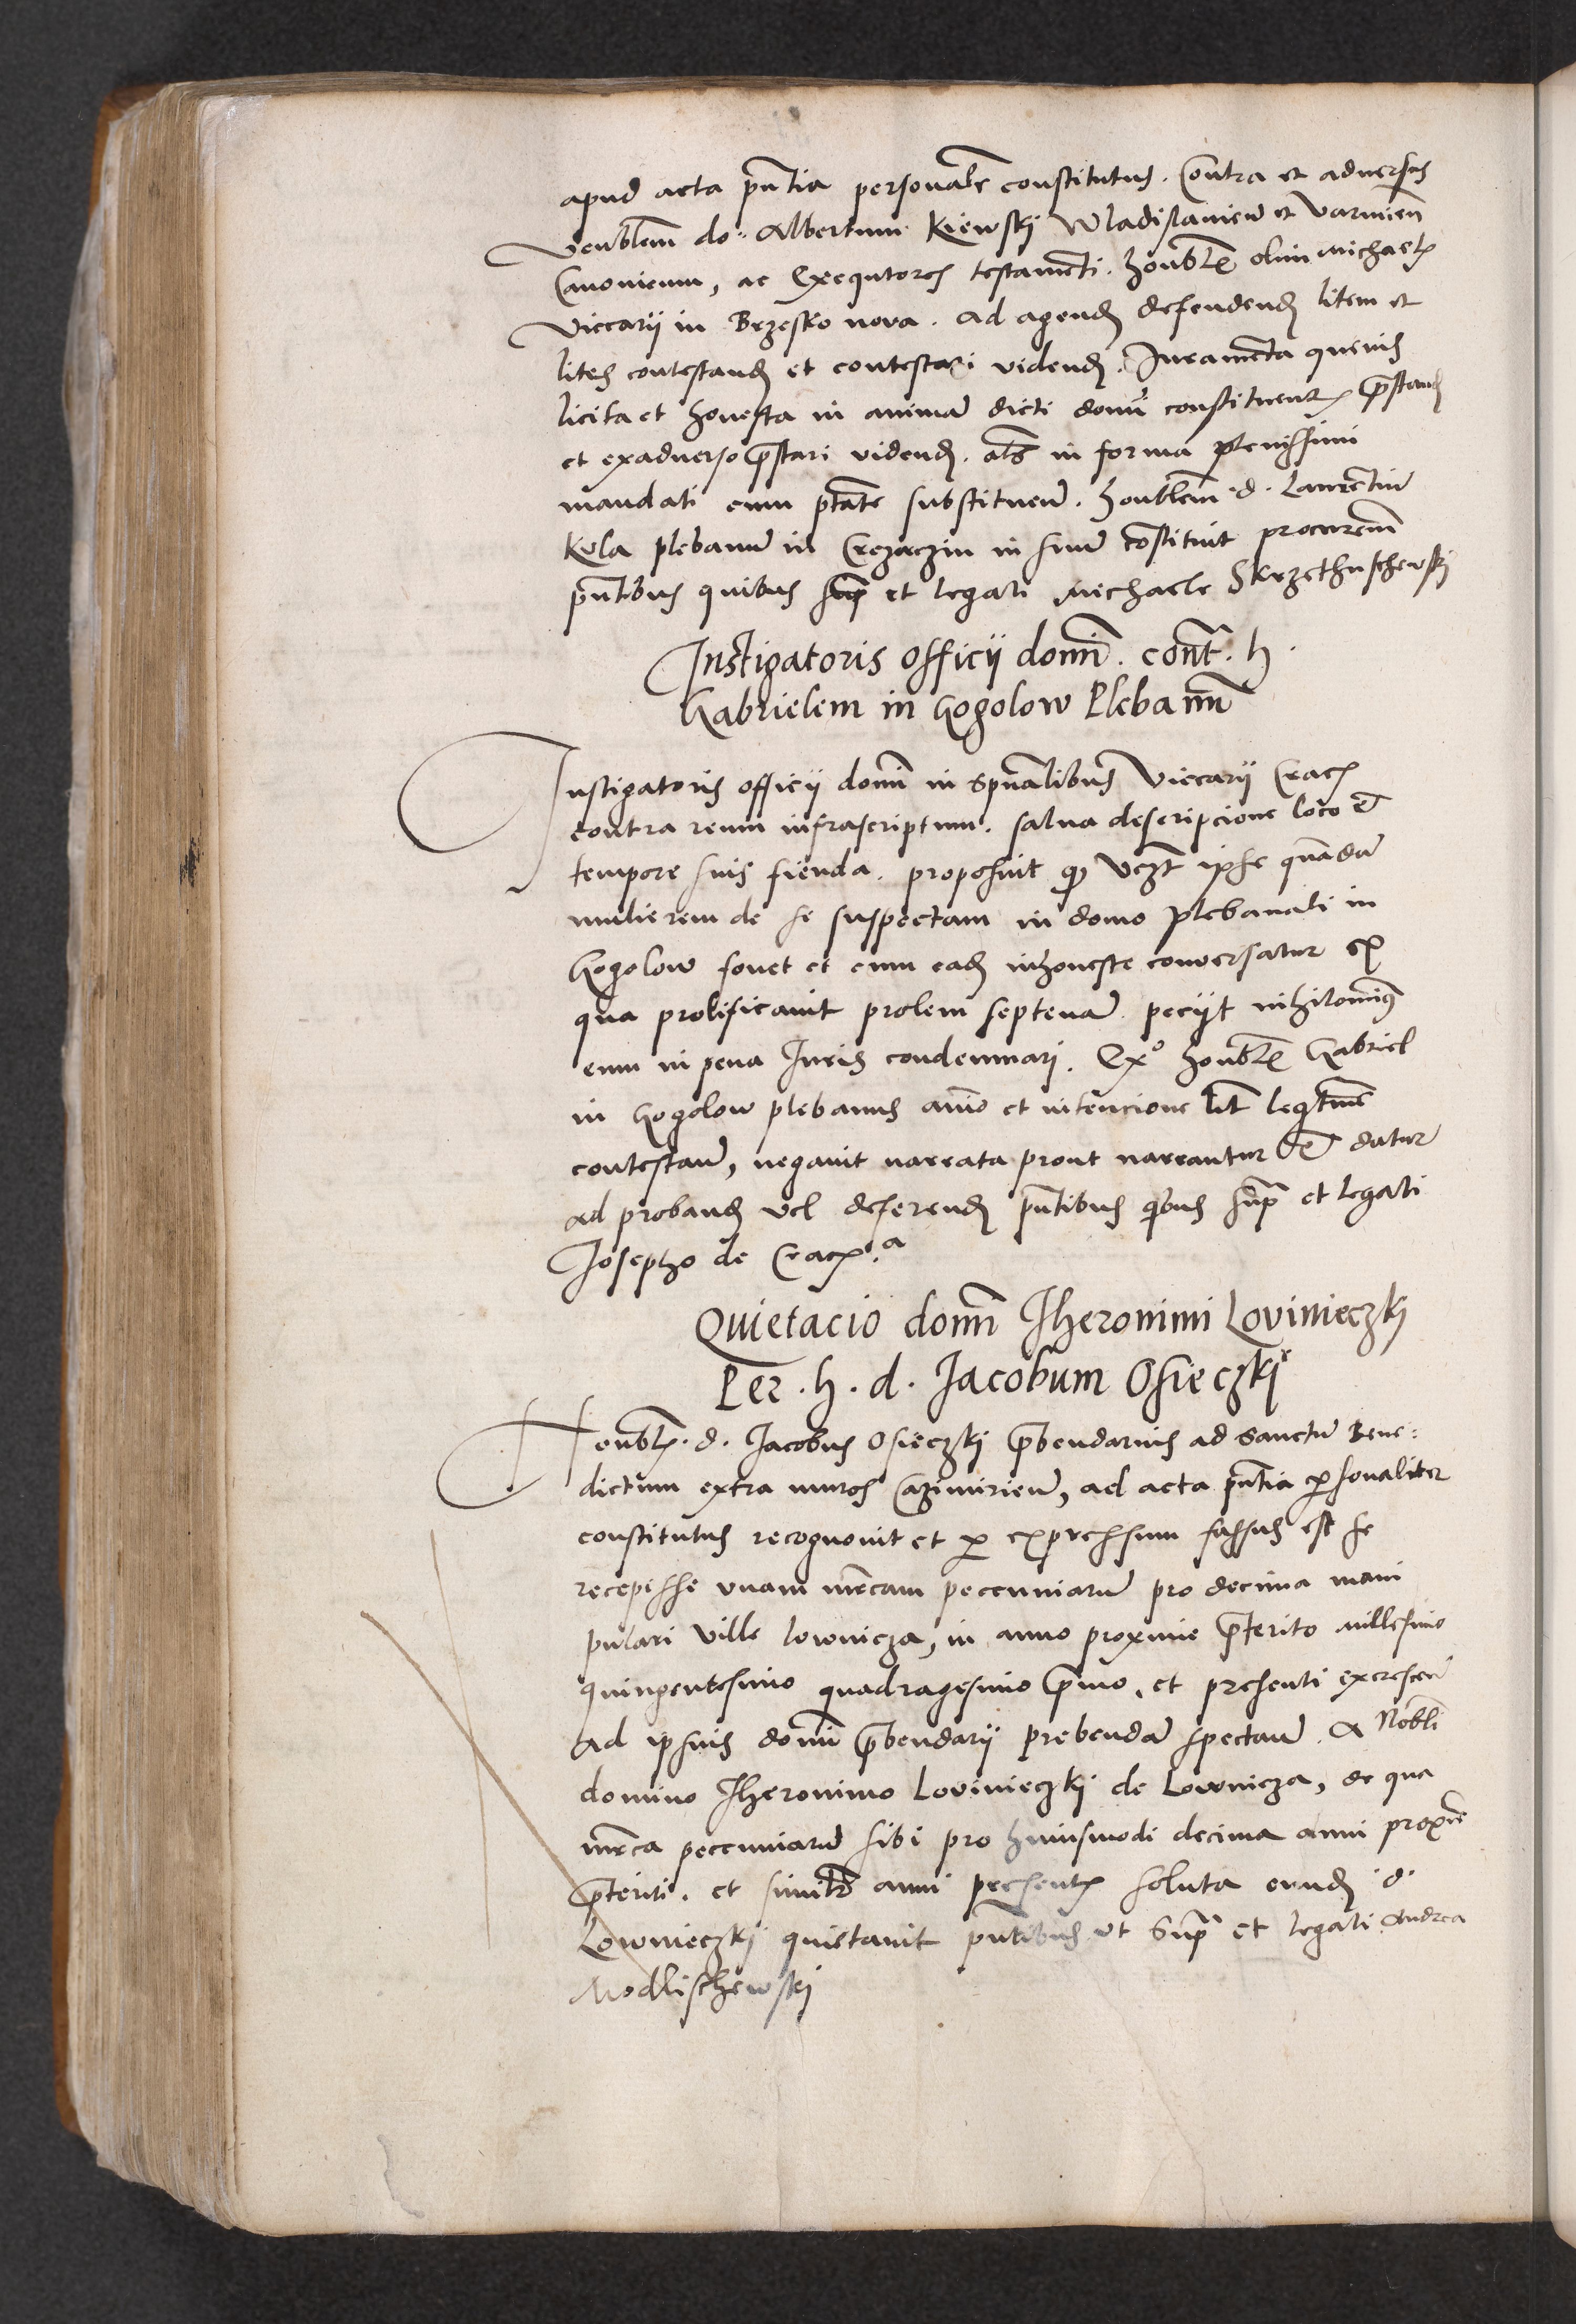 apud acta pntia personalr constitutus. Contra et adversus
venblem do: Albertum Kiewskÿ Wladislavien et varmien
Canonicum, ac Exequtores testamenti. honblis olim Michaelis
viccarii in Brzesko nova. ad agend defendend litem et
lites contestand et contestari vidend. Iuramenta quevis
licita et honesta in animam dicti domi constituentis prestand
et exadverso prestari vidend. als in forma plenissimi
mandati cum ptate substituen. honblem d. Laurentium
Kula plebanum in in suum constituit procurem
pntibus quibus supra et legali Michaele Skrzethuschewskÿ
Instigatoris officii domi. contra. h.
Gabrielem in Gogolow Plebanum
Instigatoris officii domi in spualibus Viccarii Crac
contra reum infrascriptum. salva descripcione loco et
tempore suis fienda. proposuit quod ipse quandam
mulierem de se suspectam in domo plebanali in
Gogolow fovet et cum eadem inhoneste conversatur ex
qua prolificavit prolem septenam. peciit nihilominus
eum in pena Iuris condemnari. Exo honblis Gabriel
in Gogolow plebanus animo et intencione lit legittime
contestan, negavit narrata prout narrantur et datur
ad proband vel deferend pntibus quibus supra et legali
Josepho de Cracovia
Quietacio domi Jheronimi Lovinieczkÿ
Per. h. d. Jacobum Osieczkÿ
Honblis. d. Jacobus Osieczkÿ prebendarius ad sanctum Bene:
dictum extra muros Cazimirien, ad acta pntia personaliter
constitutus recognovit et per expressum fassus est se
recepisse unam mrcam peccuniarum pro decima mani
pulari ville Lownicza, in anno proxime preterito millesimo
quingentesimo quadragesimo primo, et presenti excrescen
ad ipsius domi prebendarii prebendam spectan. a Nobli
domino Jheronimo Lovinieczkÿ de Lownicza, de qua
mrca peccuniarum sibi pro huiusmodi decima anni proxime
preteriti. et similr anni presentis soluta eundem d.
Lownieczkÿ quietavit pntibus ut supra et legali Andrea
Modlischewskÿ